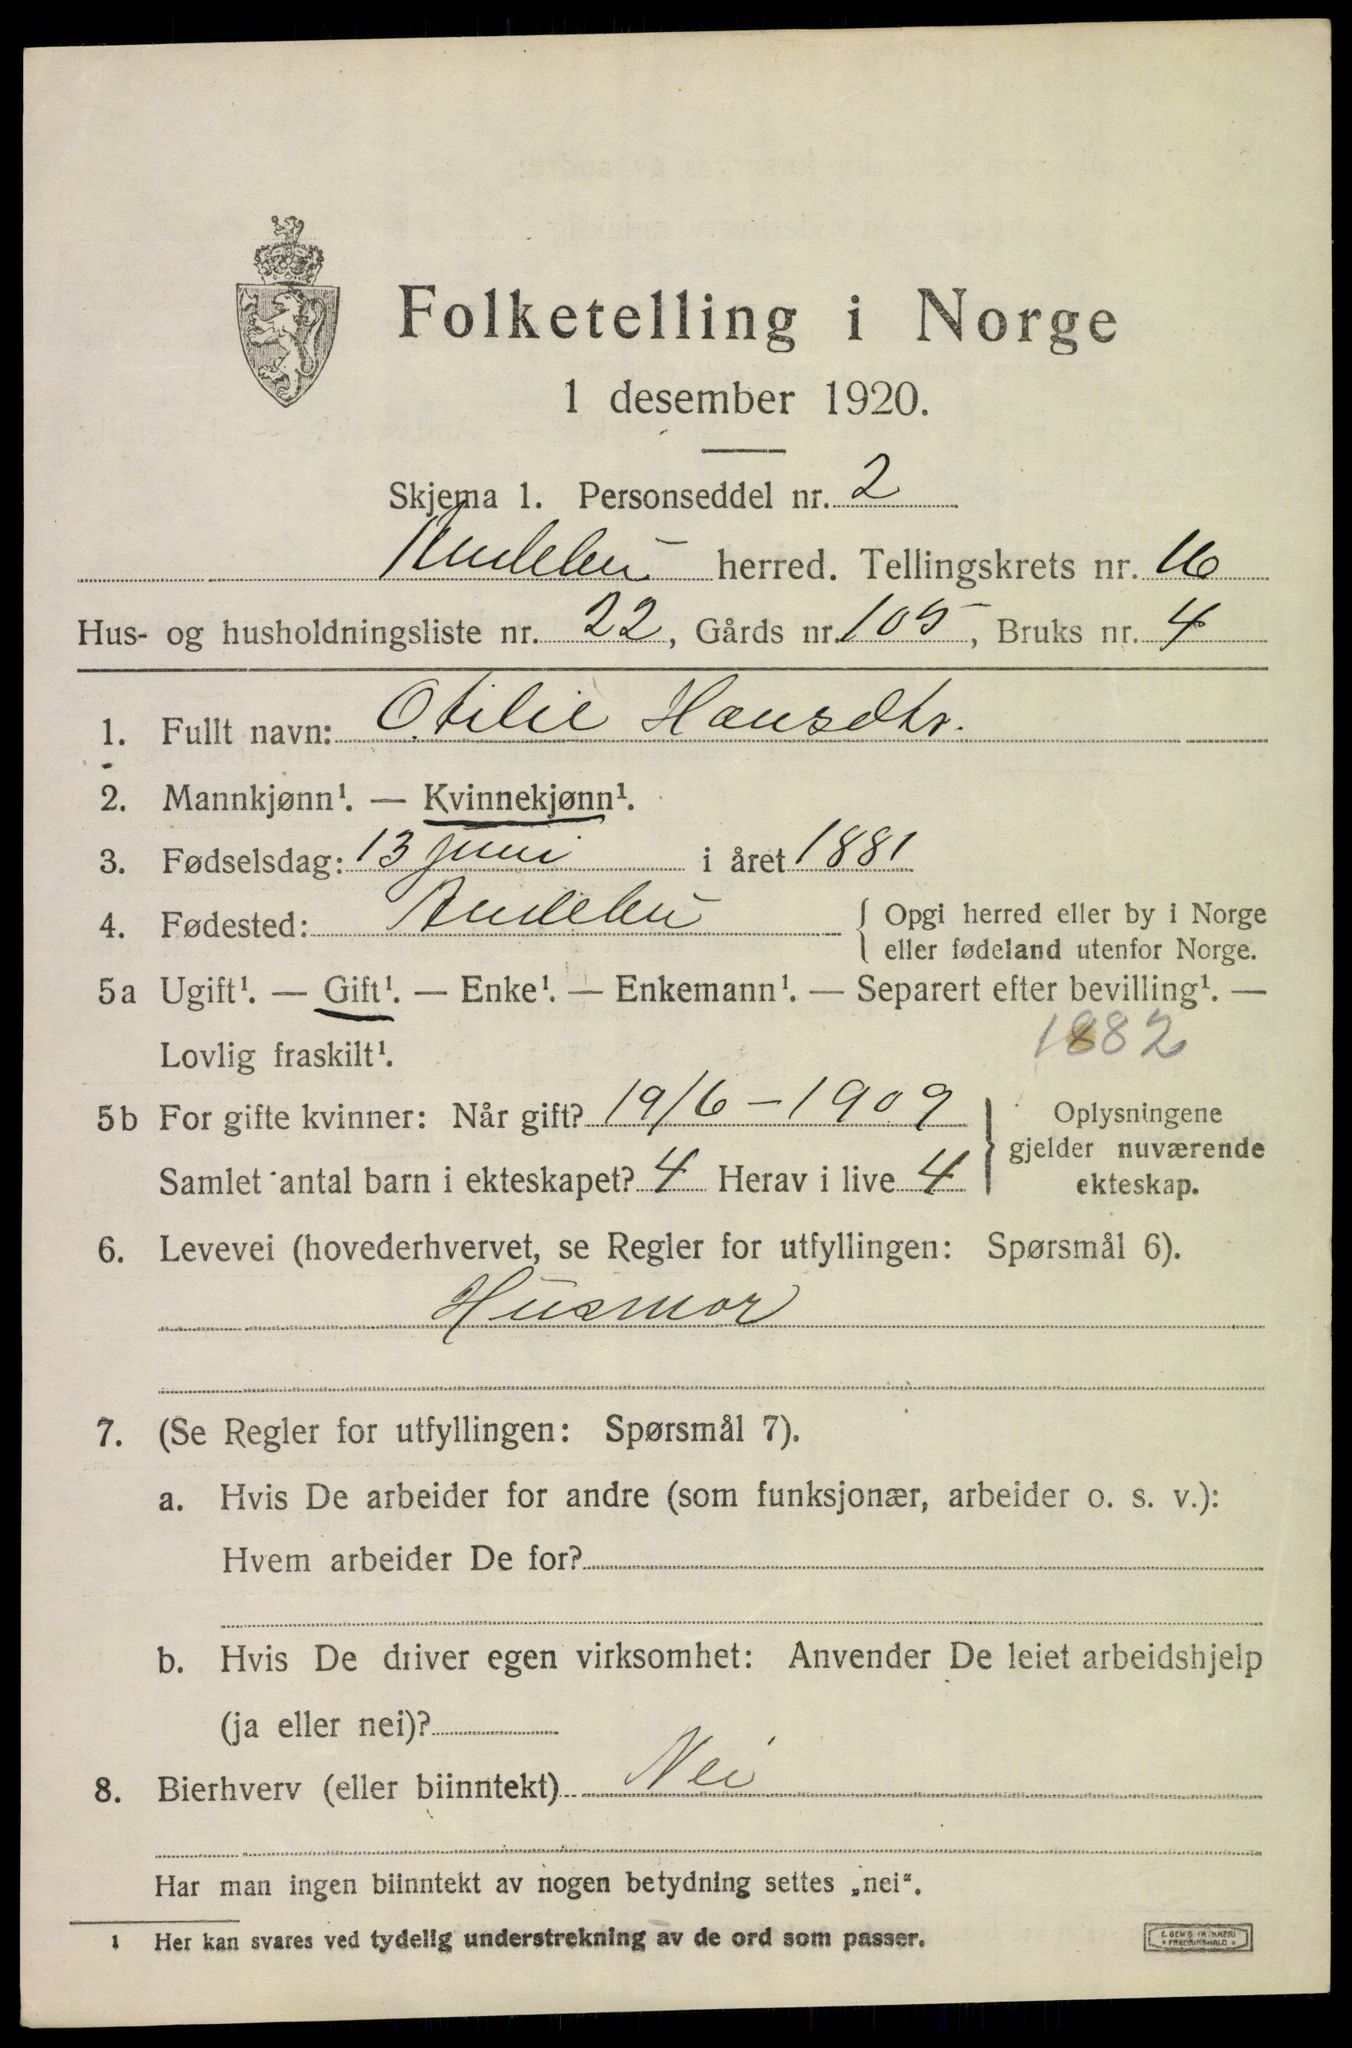 Folketelling i Norge
1 desember 1920.
Skjema 1. Personseddel nr. 2
Andebu herred. Tellingskrets nr. 16
Hus- og husholdningsliste nr. 22, Gårds nr. 105, Bruks nr. 4
1. Fullt navn: Otilie Hansdtr.
2. Mannkjønn¹. — Kvinnekjønn¹.
3. Fødselsdag: 13 juni i året 1881
4. Fødested: Andebu { Opgi herred eller by i Norge
eller fødeland utenfor Norge.
5a Ugift¹. — Gift¹. — Enke¹. — Enkemann¹. — Separert efter bevilling¹. —
Lovlig fraskilt¹. 1882
5b For gifte kvinner: Når gift? 19/6 – 1909 } Oplysningene
gjelder nuværende
Samlet antal barn i ekteskapet? 4 Herav i live 4 ekteskap.
6. Levevei (hovederhvervet, se Regler for utfyllingen: Spørsmål 6).
Husmor
7. (Se Regler for utfyllingen: Spørsmål 7).
a. Hvis De arbeider for andre (som funksjonær, arbeider o. s. v.):
Hvem arbeider De for?
b. Hvis De driver egen virksomhet: Anvender De leiet arbeidshjelp
(ja eller nei)?
8. Bierhverv (eller biinntekt) Nei
Har man ingen biinntekt av nogen betydning settes „nei".
¹ Her kan svares ved tydelig understrekning av de ord som passer.
E. SEM'S TRYKKERI
* FREDRIKSHALD *